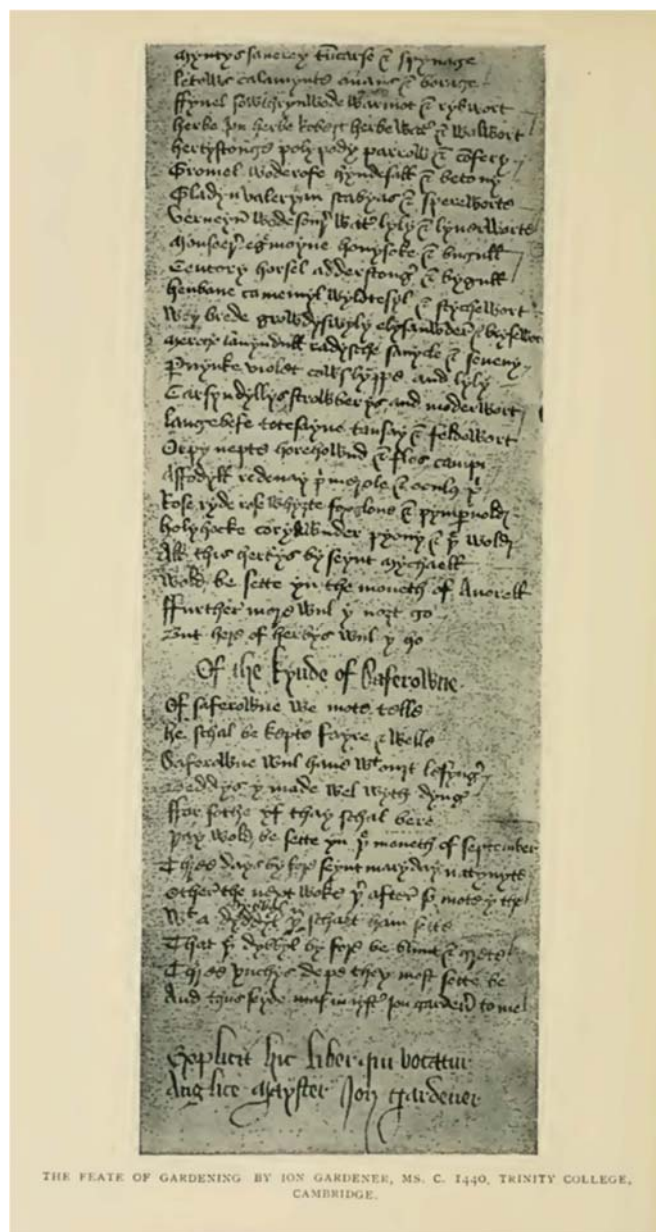 Myntys sauerey tuncarse & spynage
letows calamynte auans & borage
ffynel sowthrynwode warmot & rybwort
herbe Jon herbe Robert herbe Wat & walwort
hertystonge poly pody parrow & comfery
Gromel woderofe hyndesall & betony
Gladyn valeryan scabyas & sperewort
verueyn wodesour Wat lyly & lyuerwort
Mouseer egrimoyne honysoke & bugull
Centory horsel adderstong & bygull
henbane camemyl wyldtesyl & stychewort
Weybrede growdyswyly elysauwder & brysewort
Merege lauyndull radysche sanycle & seueny
Peruynke violet cowslyppe and lyly
Carsyndyllys strowberys and moderwort
langebefe totesayne tansay & feldewort
Orpy nepte horehownd & flos campi
Affodyll redenay primrole & oculus
Rose ryde rose whyte foxgloue & pympernold
holyhocke coryawnder pyony &
All this herbys by seynt Mychaell
Wold be sette yn the moneth of Auerell
ffurther more wul y nozt go
But here of herbys wul y ho
Of the kynde of Saferowne
Of saferowne we mote telle
he schal be kepte fayre & welle
Saferowne wul haue wtouzt lesyng
Beddys y made wel wyth dyng
ffor sothe yf thay schal bere
Thay wold be sette yn the moneth of september
Three days by fore seynt mary day natyuyte
other the next woke þr after so mote y the
Wt a dybbyl schalt ham sette
That þe dybbyl by fore be blunt & grete
Three ynchys depe they most sette be
And thus seyde mayster Jon gardener to me
Explicit hic liber qui vocatur
Anglice Mayster Jon Gardener
THE FEATE OF GARDENING BY ION GARDENER, MS. C. 1440, TRINITY COLLEGE,
CAMBRIDGE.